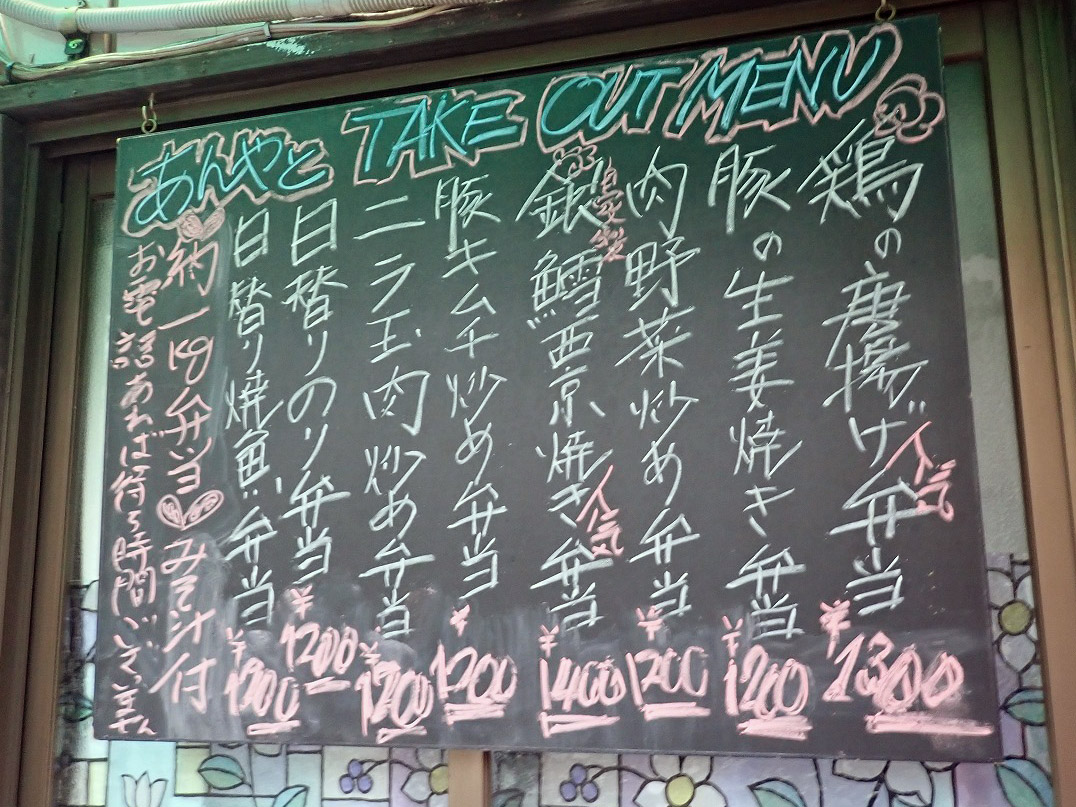 あんやと TAKE OUT MENU
鶏の唐揚げ弁当 人気 ¥1300
豚の生姜焼き弁当 ¥1200
肉野菜炒め弁当 ¥1200
自家製
銀鱈西京焼き弁当 人気 ¥1400
豚キムチ炒め弁当 ¥1200
ニラ玉肉炒め弁当 ¥1200
日替りのり弁当 ¥1200
日替り焼魚弁当 ¥1200
納 1kg弁当 みそ汁付
お電話あれば待ち時間ございません